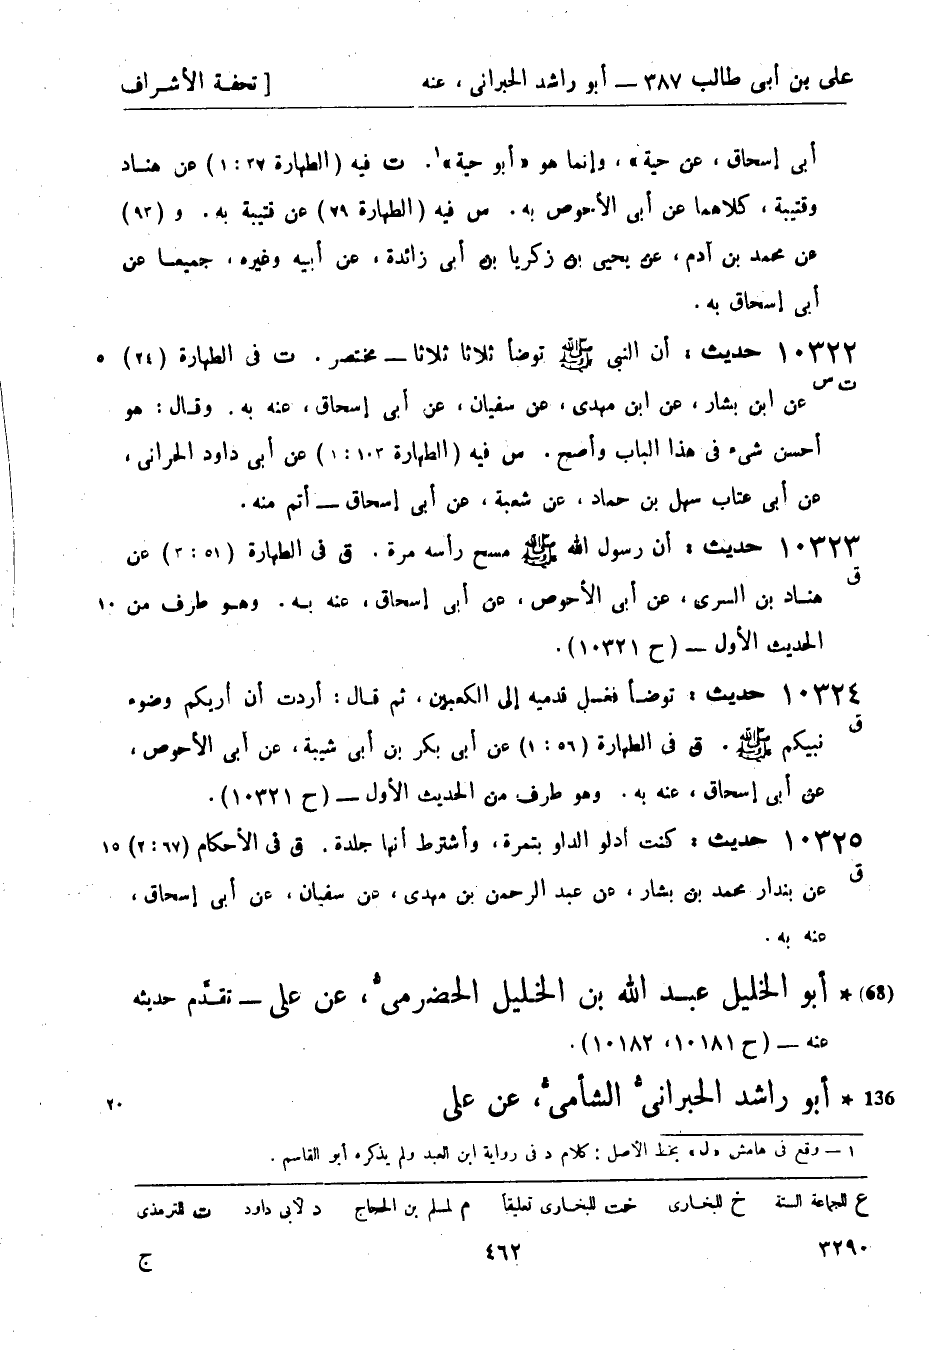 على بن أبى طالب ٣٨٧ — أبو راشد الحبرانى ، عنه [ تحفة الأشراف
أبى إسحاق ، عن حية» ، وإنما هو «أبو حية»١. ت فيه (الطهارة ٣٧ : ١) عن هناد
وقتيبة ، كلاهما عن أبى الأحوص به . س فيه (الطهارة ٧٩) عن قتيبة به . و (٩٣)
عن محمد بن آدم ، عن يحيى بن زكريا بن أبى زائدة ، عن أبيه وغيره ، جميعا عن
أبى إسحاق به .
١٠٣٢٢ حديث : أن النبي ﷺ توضأ ثلاثا ثلاثا — مختصر . ت فى الطهارة (٢٤) ٥
ت س
عن ابن بشار ، عن ابن مهدى ، عن سفيان ، عن أبى إسحاق ، عنه به . وقال : هو
أحسن شىء فى هذا الباب وأصح . س فيه (الطهارة ١٠٣ : ١) عن أبى داود الحرانى ،
عن أبى عتاب سهل بن حماد ، عن شعبة ، عن أبى إسحاق — أتم منه .
١٠٣٢٣ حديث : أن رسول الله ﷺ مسح رأسه مرة . ق فى الطهارة (٥١ : ٣) عن
ق
هناد بن السرى ، عن أبى الأحوص ، عن أبى إسحاق ، عنه به . وهو طرف من ١٠
الحديث الأول — (ح ١٠٣٢١) .
١٠٣٢٤ حديث : توضأ فغسل قدميه إلى الكعبين ، ثم قال : أردت أن أريكم وضوء
ق
نبيكم ﷺ . ق فى الطهارة (٥٦ : ١) عن أبى بكر بن أبى شيبة ، عن أبى الأحوص ،
عن أبى إسحاق ، عنه به . وهو طرف من الحديث الأول — (ح ١٠٣٢١) .
١٠٣٢٥ حديث : كنت أدلو الدلو بتمرة ، وأشترط أنها جلدة . ق فى الأحكام (٦٧ : ٢) ١٥
ق
عن بندار محمد بن بشار ، عن عبد الرحمن بن مهدى ، عن سفيان ، عن أبى إسحاق ،
عنه به .
(68) * أبو الخليل عبد الله بن الخليل الحضرمى ، عن على — تقدَّم حديثه
عنه — (ح ١٠١٨١ ، ١٠١٨٢) .
136 * أبو راشد الحبرانى الشأمى ، عن على ٢٠
١ — وقع فى هامش «ل» بخط الأصل : كلام د فى رواية ابن العبد ولم يذكره أبو القاسم .
ع للجماعة الستة خ للبخارى خت للبخارى تعليقاً م لمسلم بن الحجاج د لأبى داود ت للترمذى
٣٢٩٠ ٤٦٢ ج